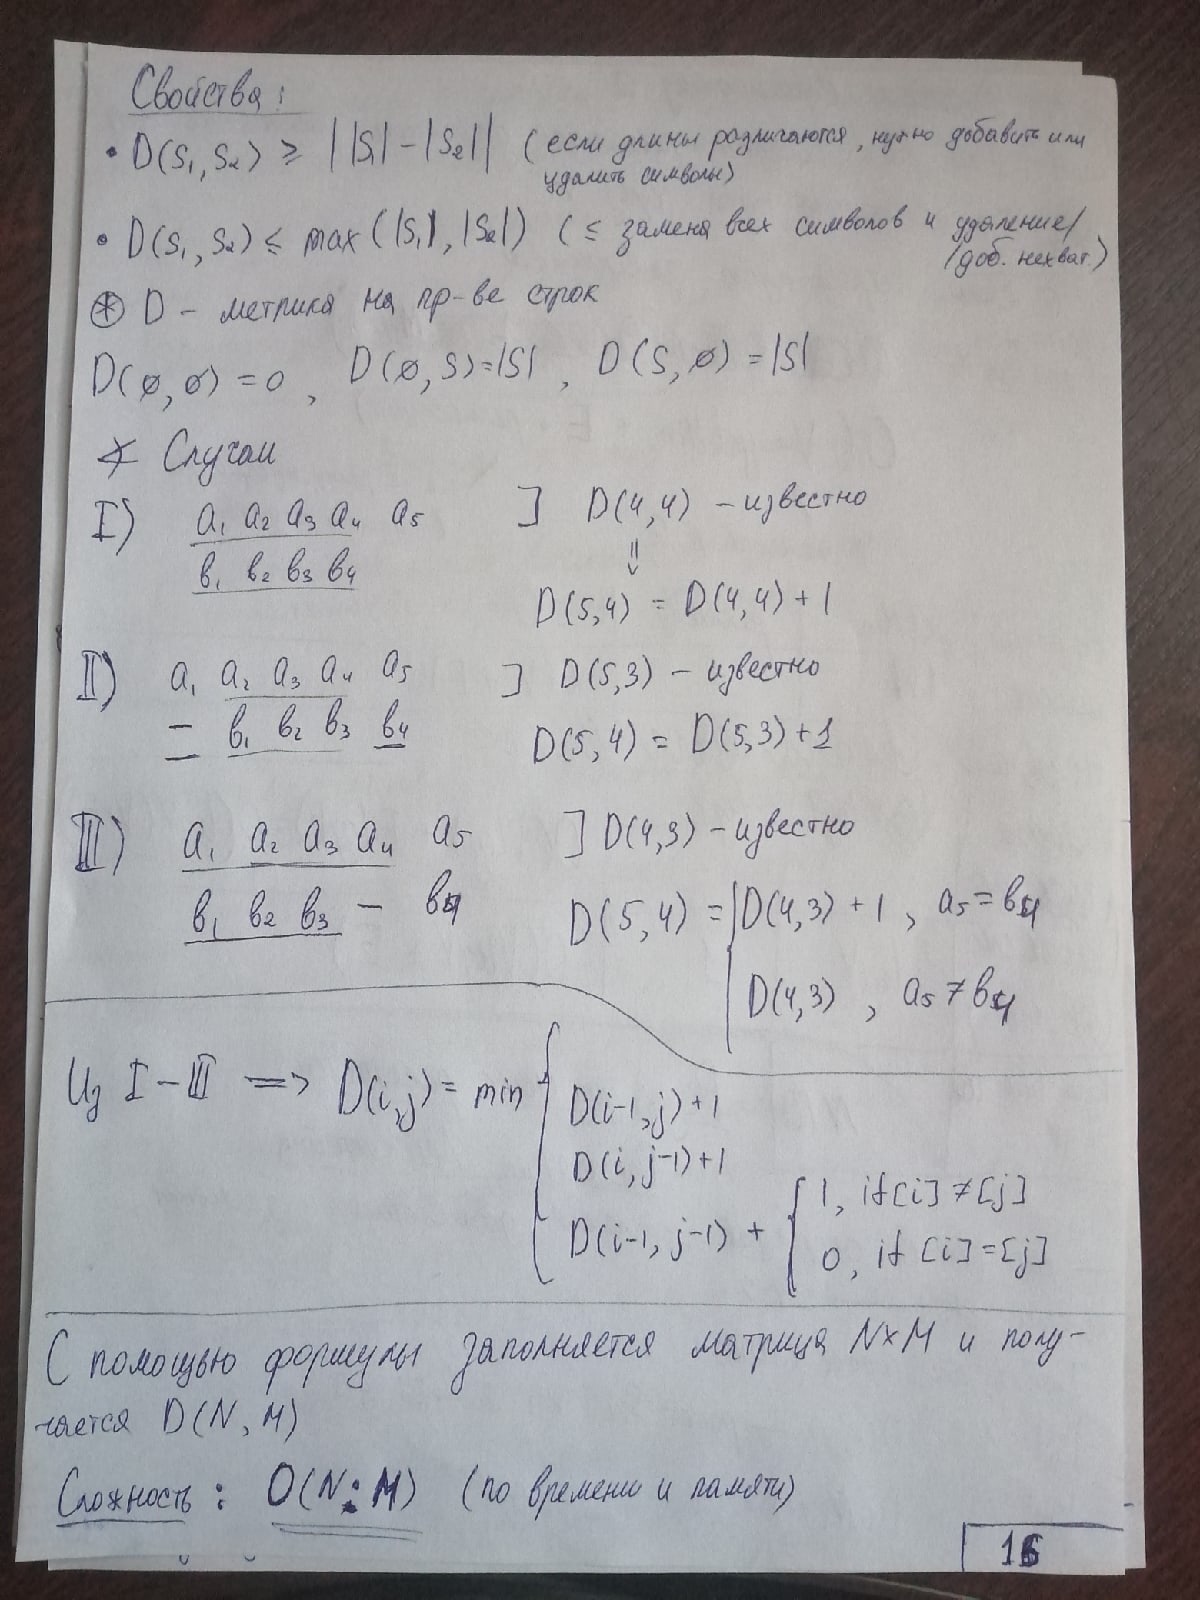 Свойства:
• D(S₁, S₂) ≥ ||S₁| - |S₂|| (если длины различаются, нужно добавить или
удалить символы)
• D(S₁, S₂) ≤ max(|S₁|, |S₂|) (≤ замена всех символов и удаление/
/доб. нехват.)
⊛ D - метрика на пр-ве строк
D(∅, ∅) = 0, D(∅, S) = |S|, D(S, ∅) = |S|
∢ Случаи
I) a₁ a₂ a₃ a₄ a₅ ] D(4,4) - известно
b₁ b₂ b₃ b₄ ⇓
D(5,4) = D(4,4) + 1
II) a₁ a₂ a₃ a₄ a₅ ] D(5,3) - известно
— b₁ b₂ b₃ b₄ D(5,4) = D(5,3) + 1
III) a₁ a₂ a₃ a₄ a₅ ] D(4,3) - известно
b₁ b₂ b₃ — b₄ D(5,4) = D(4,3) + 1, a₅ = b₄
D(4,3), a₅ ≠ b₄
Из I - III ⇒ D(i,j) = min { D(i-1, j) + 1
D(i, j-1) + 1
D(i-1, j-1) + { 1, if [i] ≠ [j]
0, if [i] = [j]
С помощью формулы заполняется матрица N×M и полу-
чается D(N, M)
Сложность: O(N·M) (по времени и памяти)
16